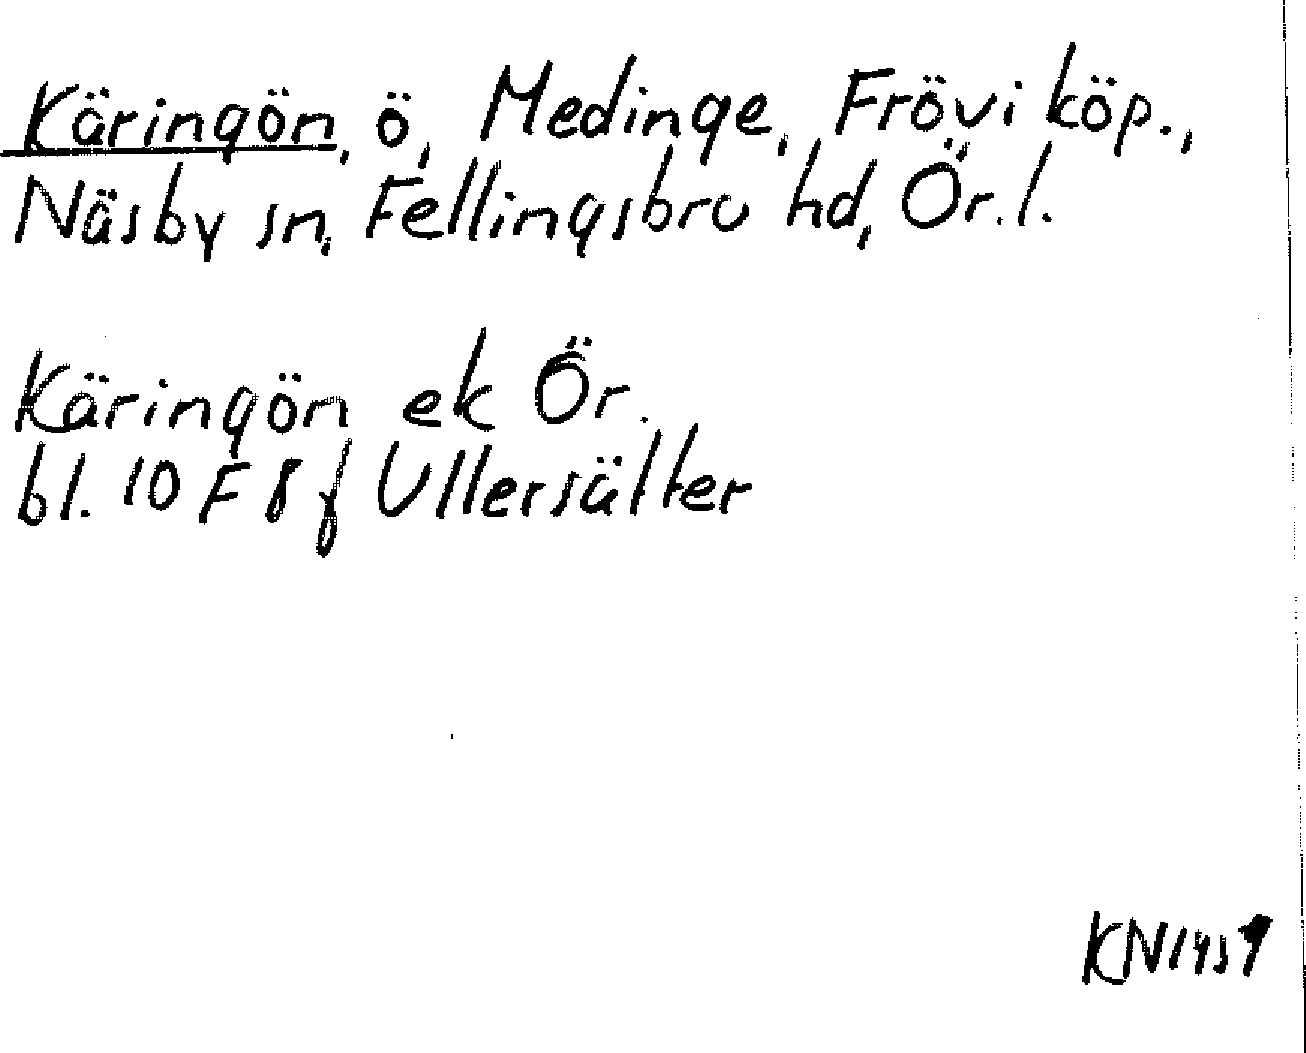 Käringön, ö, Medinge, Frövi köp.,
Näsby sn, Fellingsbro hd, Ör.l.
Käringön ek Ör.
bl. 10 F 8 f Ullersätter